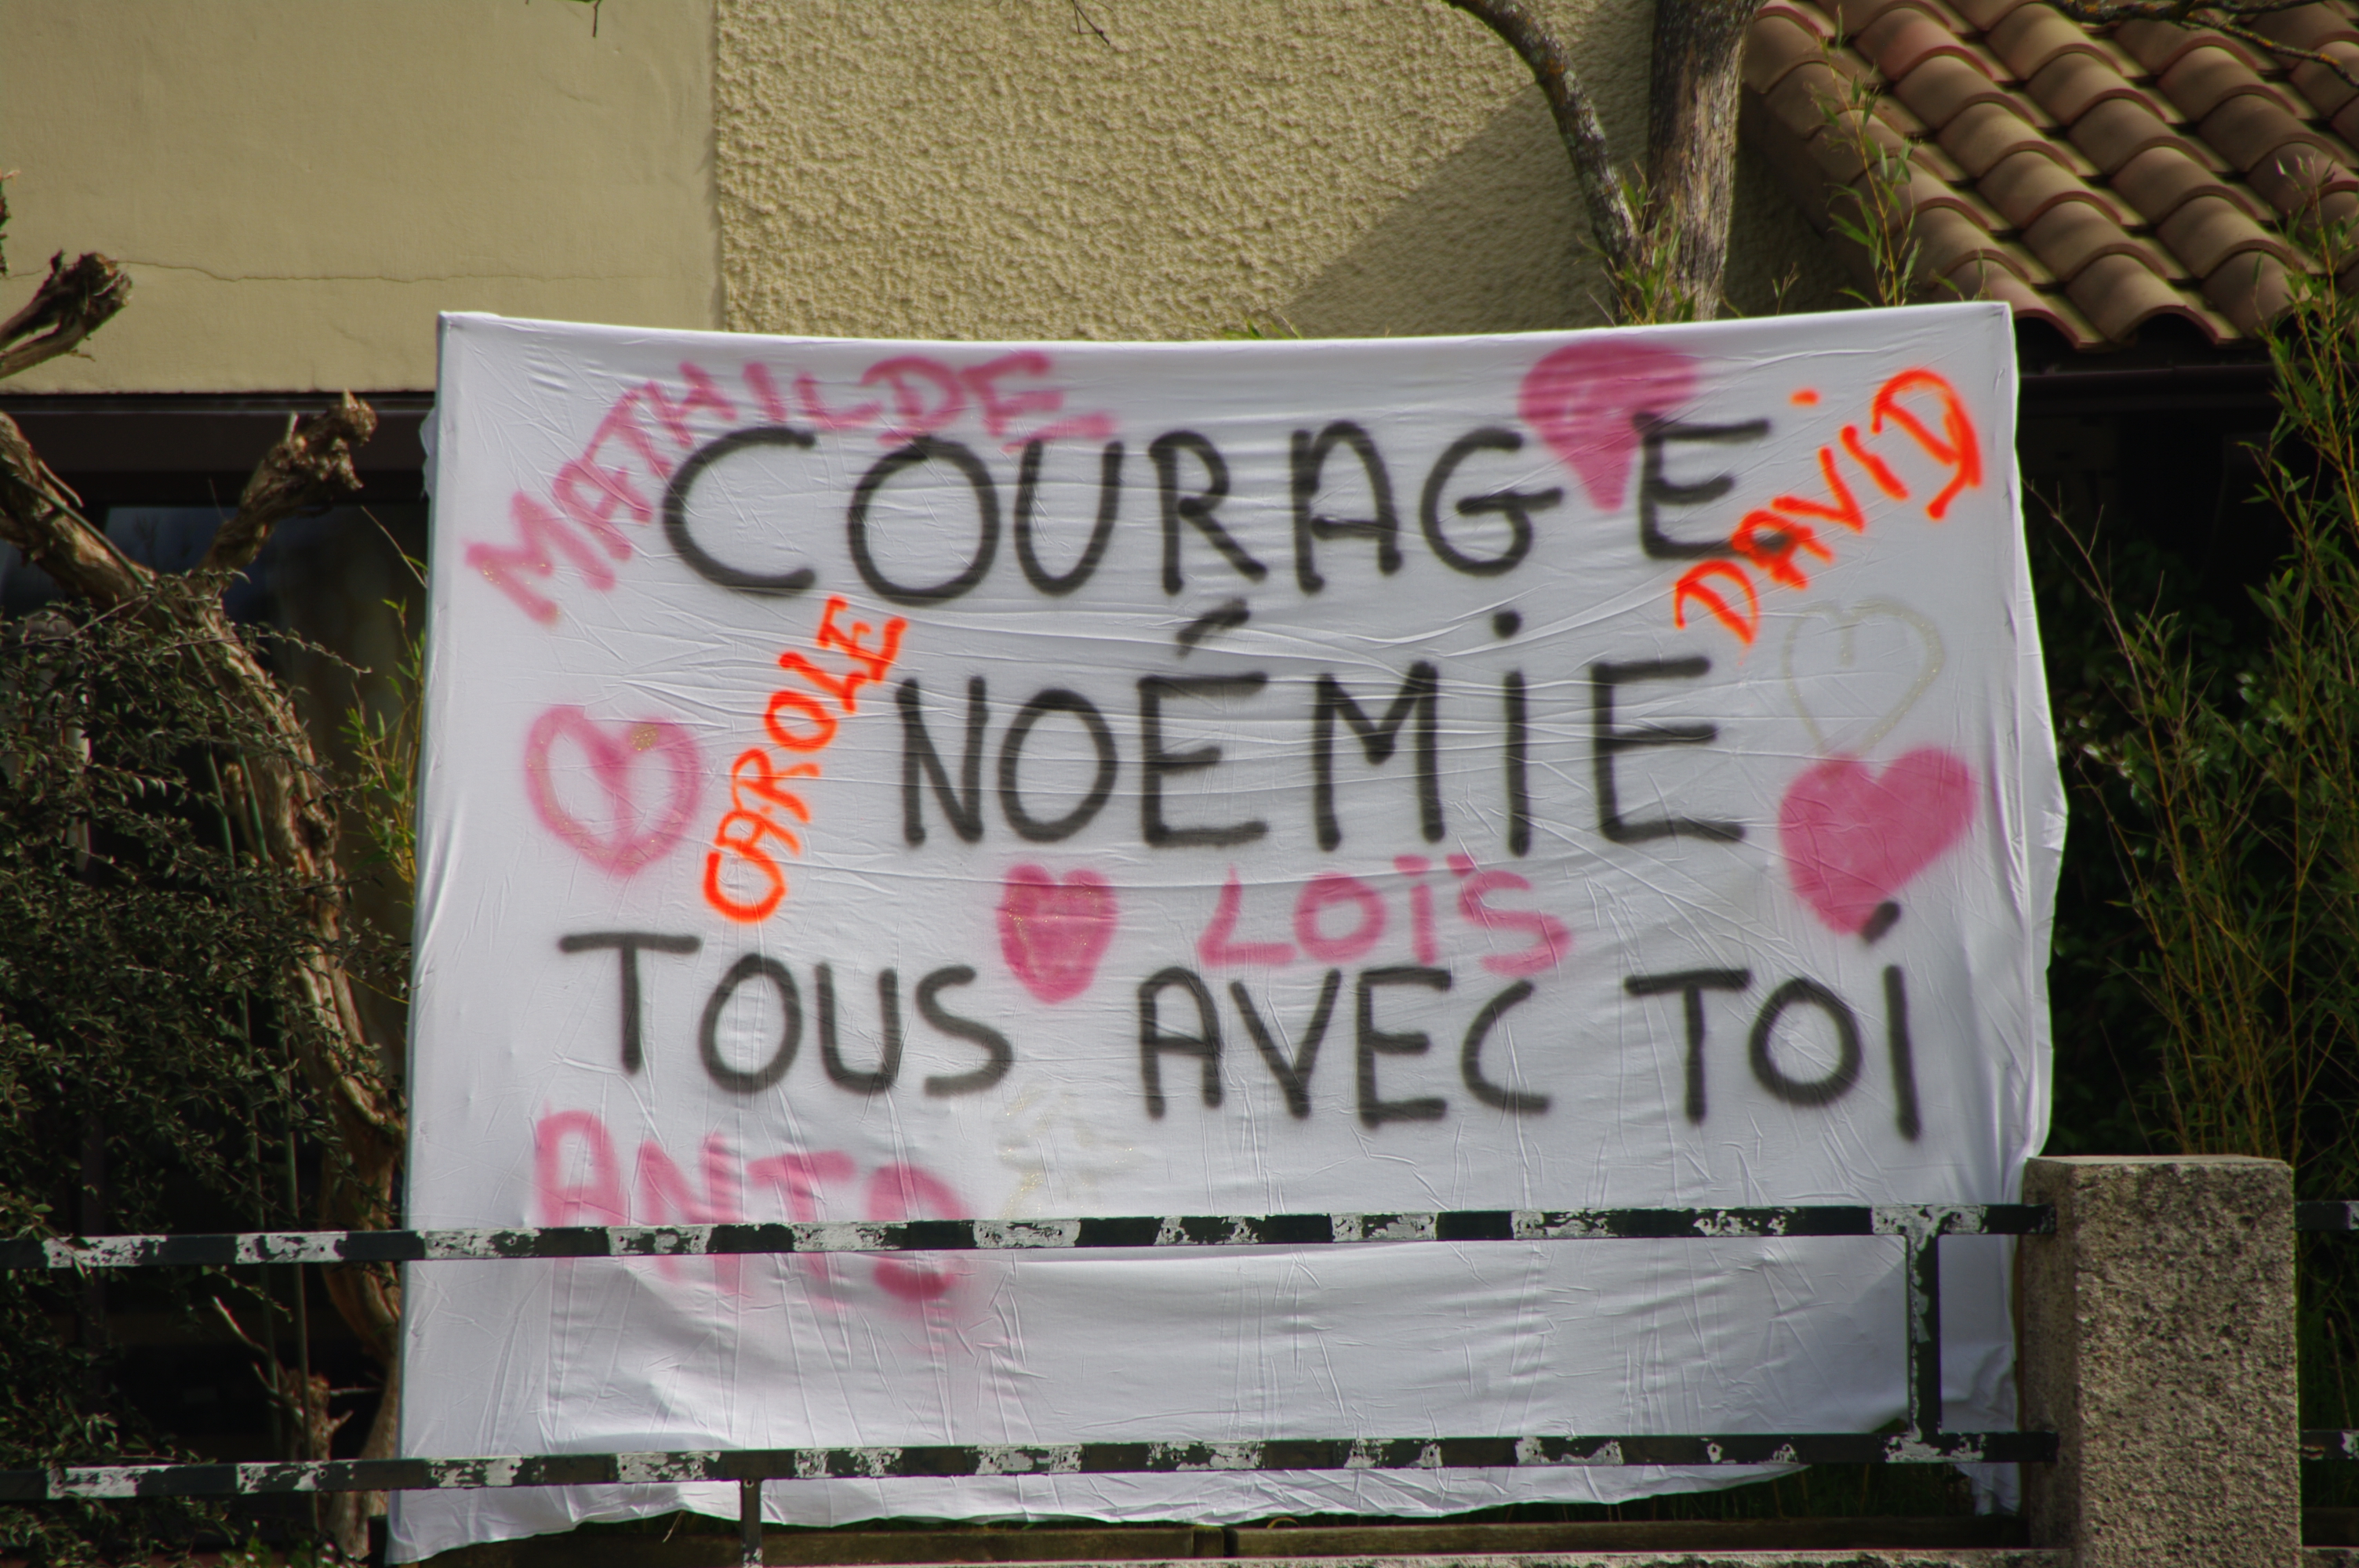 MATHILDE
COURAGE
DAVID
CAROLE
NOÉMIE
LOÏS
TOUS AVEC TOI
ANTO